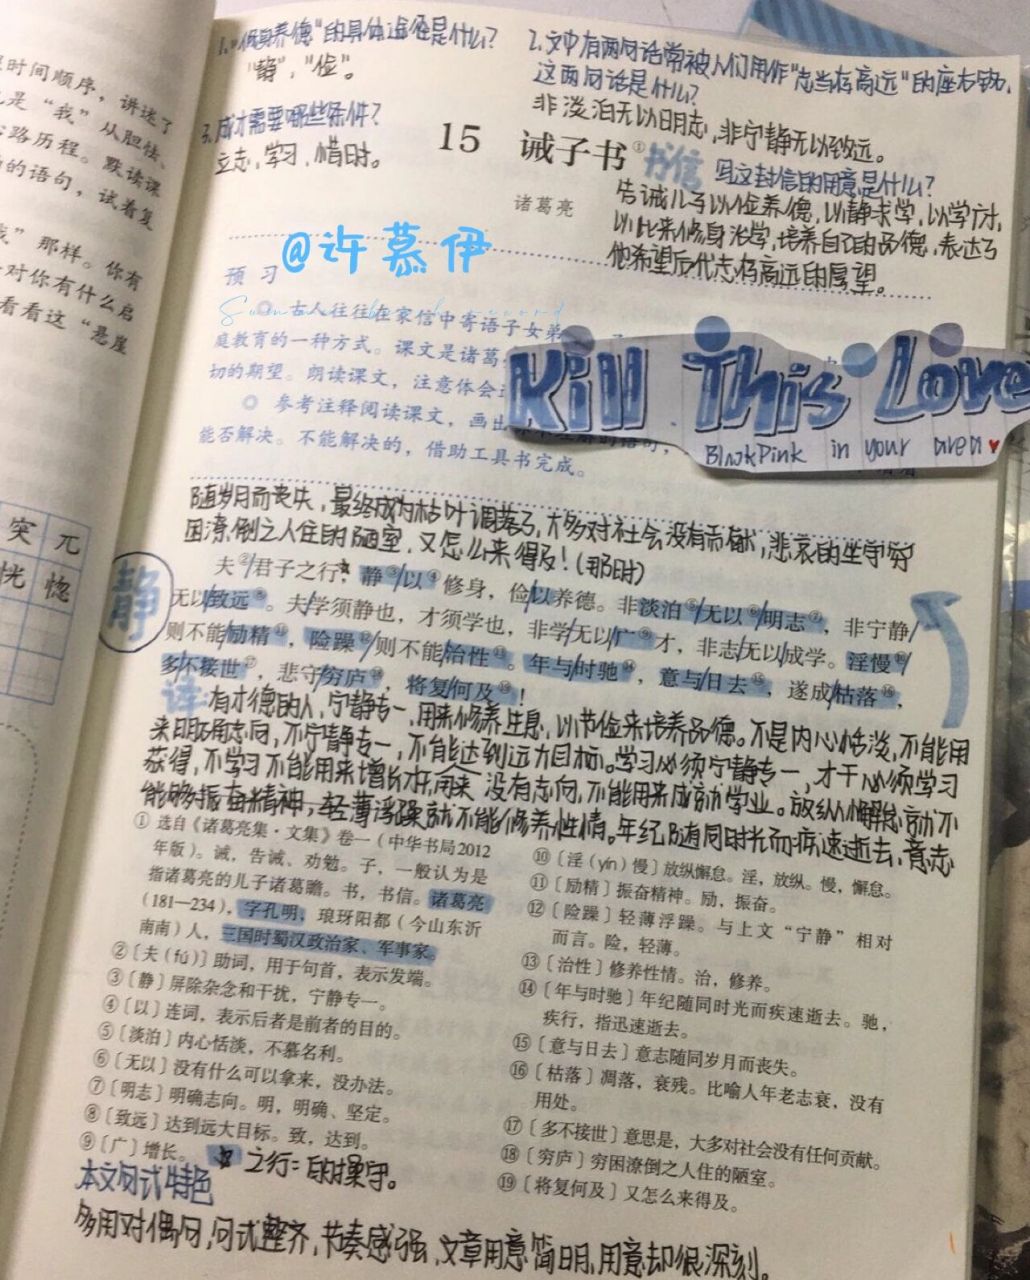 限时间顺序，讲述了
是“我”从胆怯、
路历程。默读课
的语句，试着复
我”那样。你有
对你有什么启
看看这“悬崖
突 兀
恍 惚
1.“修身养德”的具体途径是什么？
“静”、“俭”。
2.文中有两句话常被人们用作“志当存高远”的座右铭，
这两句话是什么？
非淡泊无以明志，非宁静无以致远。
3.成才需要哪些条件？
立志，学习，惜时。
15 诫子书①
书信
诸葛亮
写这封信的用意是什么？
告诫儿子以俭养德，以静求学，以学广才，
以此来修身治学，培养自己的品德，表达了
他希望后代志存高远的厚望。
@许慕伊
预 习
◎ 古人往往在家信中寄语子女弟
庭教育的一种方式。课文是诸葛
切的期望。朗读课文，注意体会
◎ 参考注释阅读课文，画出
能否解决。不能解决的，借助工具书完成。
Kill This Love
BlackPink in your area
随岁月而丧失，最终成为枯叶凋落了，大多对社会没有贡献，悲哀的坐守穷
困潦倒之人住的陋室，又怎么来得及！(那时)
静
夫②/君子之行，静③/以④修身，俭/以养德。非淡泊⑤/无以⑥/明志⑦，非宁静/
无以/致远⑧。夫/学须静也，才须学也，非学/无以/广⑨才，非志/无以/成学。淫慢⑩/
则不能/励精⑪，险躁⑫/则不能/治性⑬。年与/时驰⑭，意与/日去⑮，遂成/枯落⑯，
多/不接世⑰，悲守/穷庐⑱，将复/何及⑲！
译
有才德的人，宁静专一，用来修养生息，以节俭来培养品德。不是内心恬淡，不能用
来明确志向，不宁静专一，不能达到远大目标。学习必须宁静专一，才干必须学习
获得，不学习不能用来增长才干，没有志向，不能用来成就学业。放纵懈怠就不
能够振奋精神，轻薄浮躁就不能修养性情。年纪随同时光而疾速逝去，意志
① 选自《诸葛亮集·文集》卷一（中华书局2012
年版）。诫，告诫、劝勉。子，一般认为是
指诸葛亮的儿子诸葛瞻。书，书信。诸葛亮
（181—234），字孔明，琅玡阳都（今山东沂
南南）人，三国时蜀汉政治家、军事家。
②〔夫（fú）〕助词，用于句首，表示发端。
③〔静〕屏除杂念和干扰，宁静专一。
④〔以〕连词，表示后者是前者的目的。
⑤〔淡泊〕内心恬淡，不慕名利。
⑥〔无以〕没有什么可以拿来，没办法。
⑦〔明志〕明确志向。明，明确、坚定。
⑧〔致远〕达到远大目标。致，达到。
⑨〔广〕增长。
⑩〔淫（yín）慢〕放纵懈怠。淫，放纵。慢，懈怠。
⑪〔励精〕振奋精神。励，振奋。
⑫〔险躁〕轻薄浮躁。与上文“宁静”相对
而言。险，轻薄。
⑬〔治性〕修养性情。治，修养。
⑭〔年与时驰〕年纪随同时光而疾速逝去。驰，
疾行，指迅速逝去。
⑮〔意与日去〕意志随同岁月而丧失。
⑯〔枯落〕凋落，衰残。比喻人年老志衰，没有
用处。
⑰〔多不接世〕意思是，大多对社会没有任何贡献。
⑱〔穷庐〕穷困潦倒之人住的陋室。
⑲〔将复何及〕又怎么来得及。
之行：的操守。
本文句式特色
多用对偶句，句式整齐，节奏感强，文章用意简明，用意却很深刻。